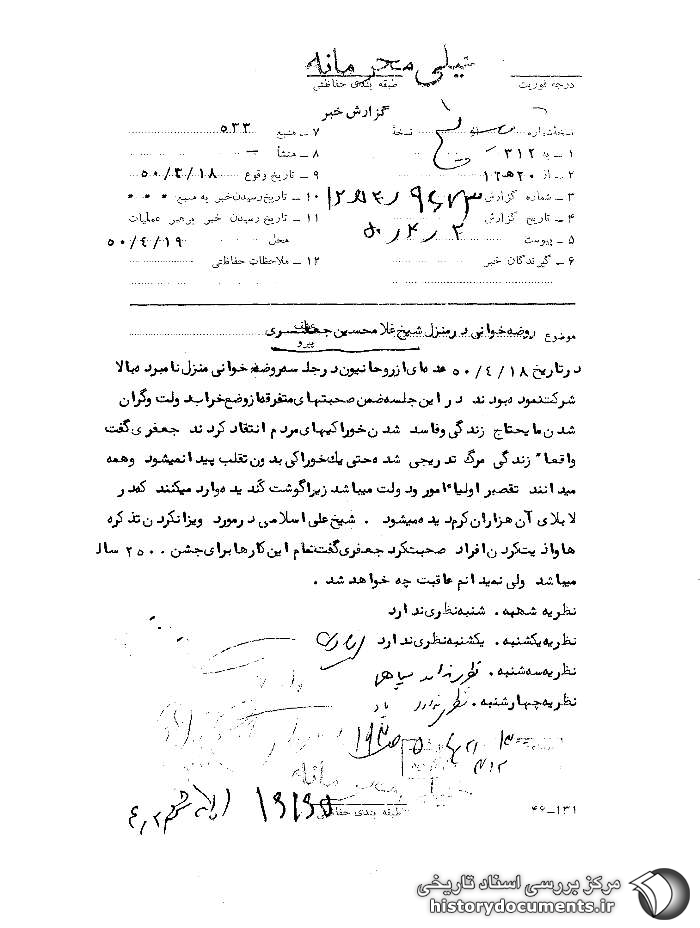 خیلی محرمانه
درجه فوریت
طبقه بندی حفاظتی
گزارش خبر
نسخه
۱ ـ به ۳۱۲
۲ ـ از ۲۰ ه‍ ۱۲
۳ ـ شماره گزارش
۴ ـ تاریخ گزارش
۵ ـ پیوست
۶ ـ گیرندگان خبر
۷ ـ منبع ۵۳۳
۸ ـ منشأ ـ
۹ ـ تاریخ وقوع ۵۰/۴/۱۸
۱۰ ـ تاریخ رسیدن خبر به منبع
۱۱ ـ تاریخ رسیدن خبر برهبر عملیات
محل ۵۰/٤/۱۹
۱۲ ـ ملاحظات حفاظتی
موضوع روضه خوانی در منزل شیخ غلامحسین جعفری
پیرو
در تاریخ ۵۰/٤/۱۸ عده ای از روحانیون در جلسه روضه خوانی منزل نامبرده بالا
شرکت نموده بودند در این جلسه ضمن صحبتهای متفرقه از وضع خراب دولت و گران
شدن مایحتاج زندگی و فاسد شدن خوراکیهای مردم انتقاد کردند جعفری گفت
واقعاً زندگی مرگ تدریجی شده حتی یک خوراکی بدون تقلب پیدا نمیشود و همه
میدانند تقصیر اولیاء امور و دولت میباشد زیرا گوشت گندیده وارد میکنند که در
لابلای آن هزاران کرم دیده میشود . شیخ علی اسلامی در مورد ویزا نکردن تذکره
ها و اذیت کردن افراد صحبت کرد جعفری گفت تمام این کارها برای جشن ۲۵۰۰ سال
میباشد ولی نمیدانم عاقبت چه خواهد شد .
نظریه شنبه . شنبه نظری ندارد
نظریه یکشنبه . یکشنبه نظری ندارد
نظریه سه شنبه . نظری ندارد سپاهی
نظریه چهارشنبه . نظری ندارد
طبقه بندی حفاظتی
۱۳۱ـ۴۶
مرکز بررسی اسناد تاریخی
historydocuments.ir